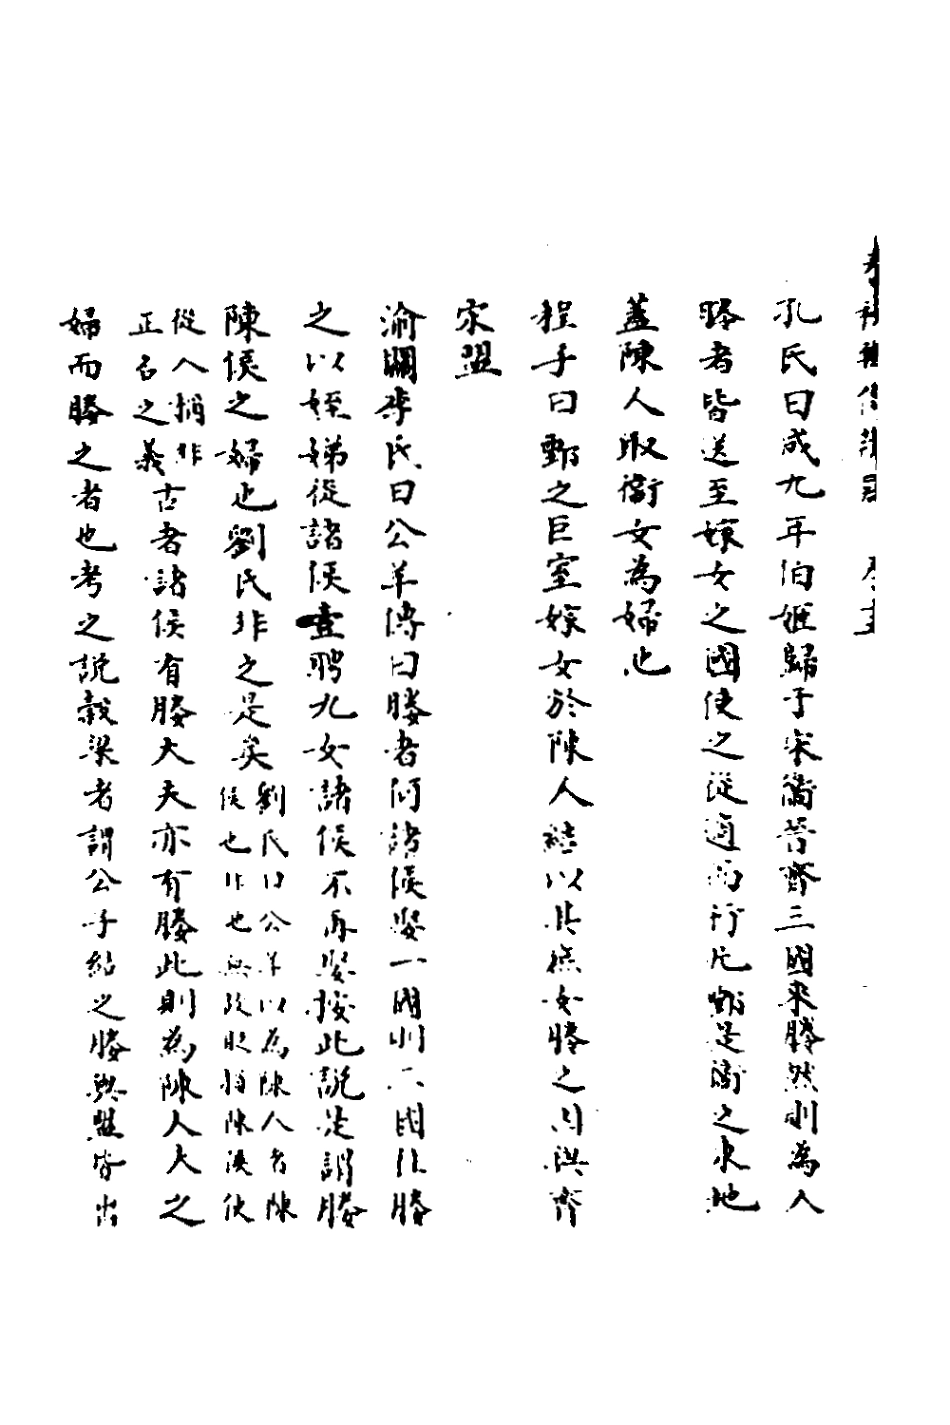 孔氏曰成九年伯姬歸于宋衛晉齊三國來媵然則為人
媵者皆送至嫁女之國使之從適而行凡鄄是衛之東地
蓋陳人取衛女為婦也
程子曰鄄之巨室嫁女於陳人結以其庶女媵之因與齊
宋盟
渝關李氏曰公羊傳曰媵者何諸侯娶一國則二國往媵
之以姪娣從諸侯壹聘九女諸侯不再娶按此說是謂媵
陳侯之婦也劉氏非之是矣劉氏曰公羊以為陳人者陳
侯也非也無故貶損陳侯使
從人稱非
正名之義古者諸侯有媵大夫亦有媵此則為陳人大之
婦而媵之者也考之說穀梁者謂公子結之媵與盟皆出